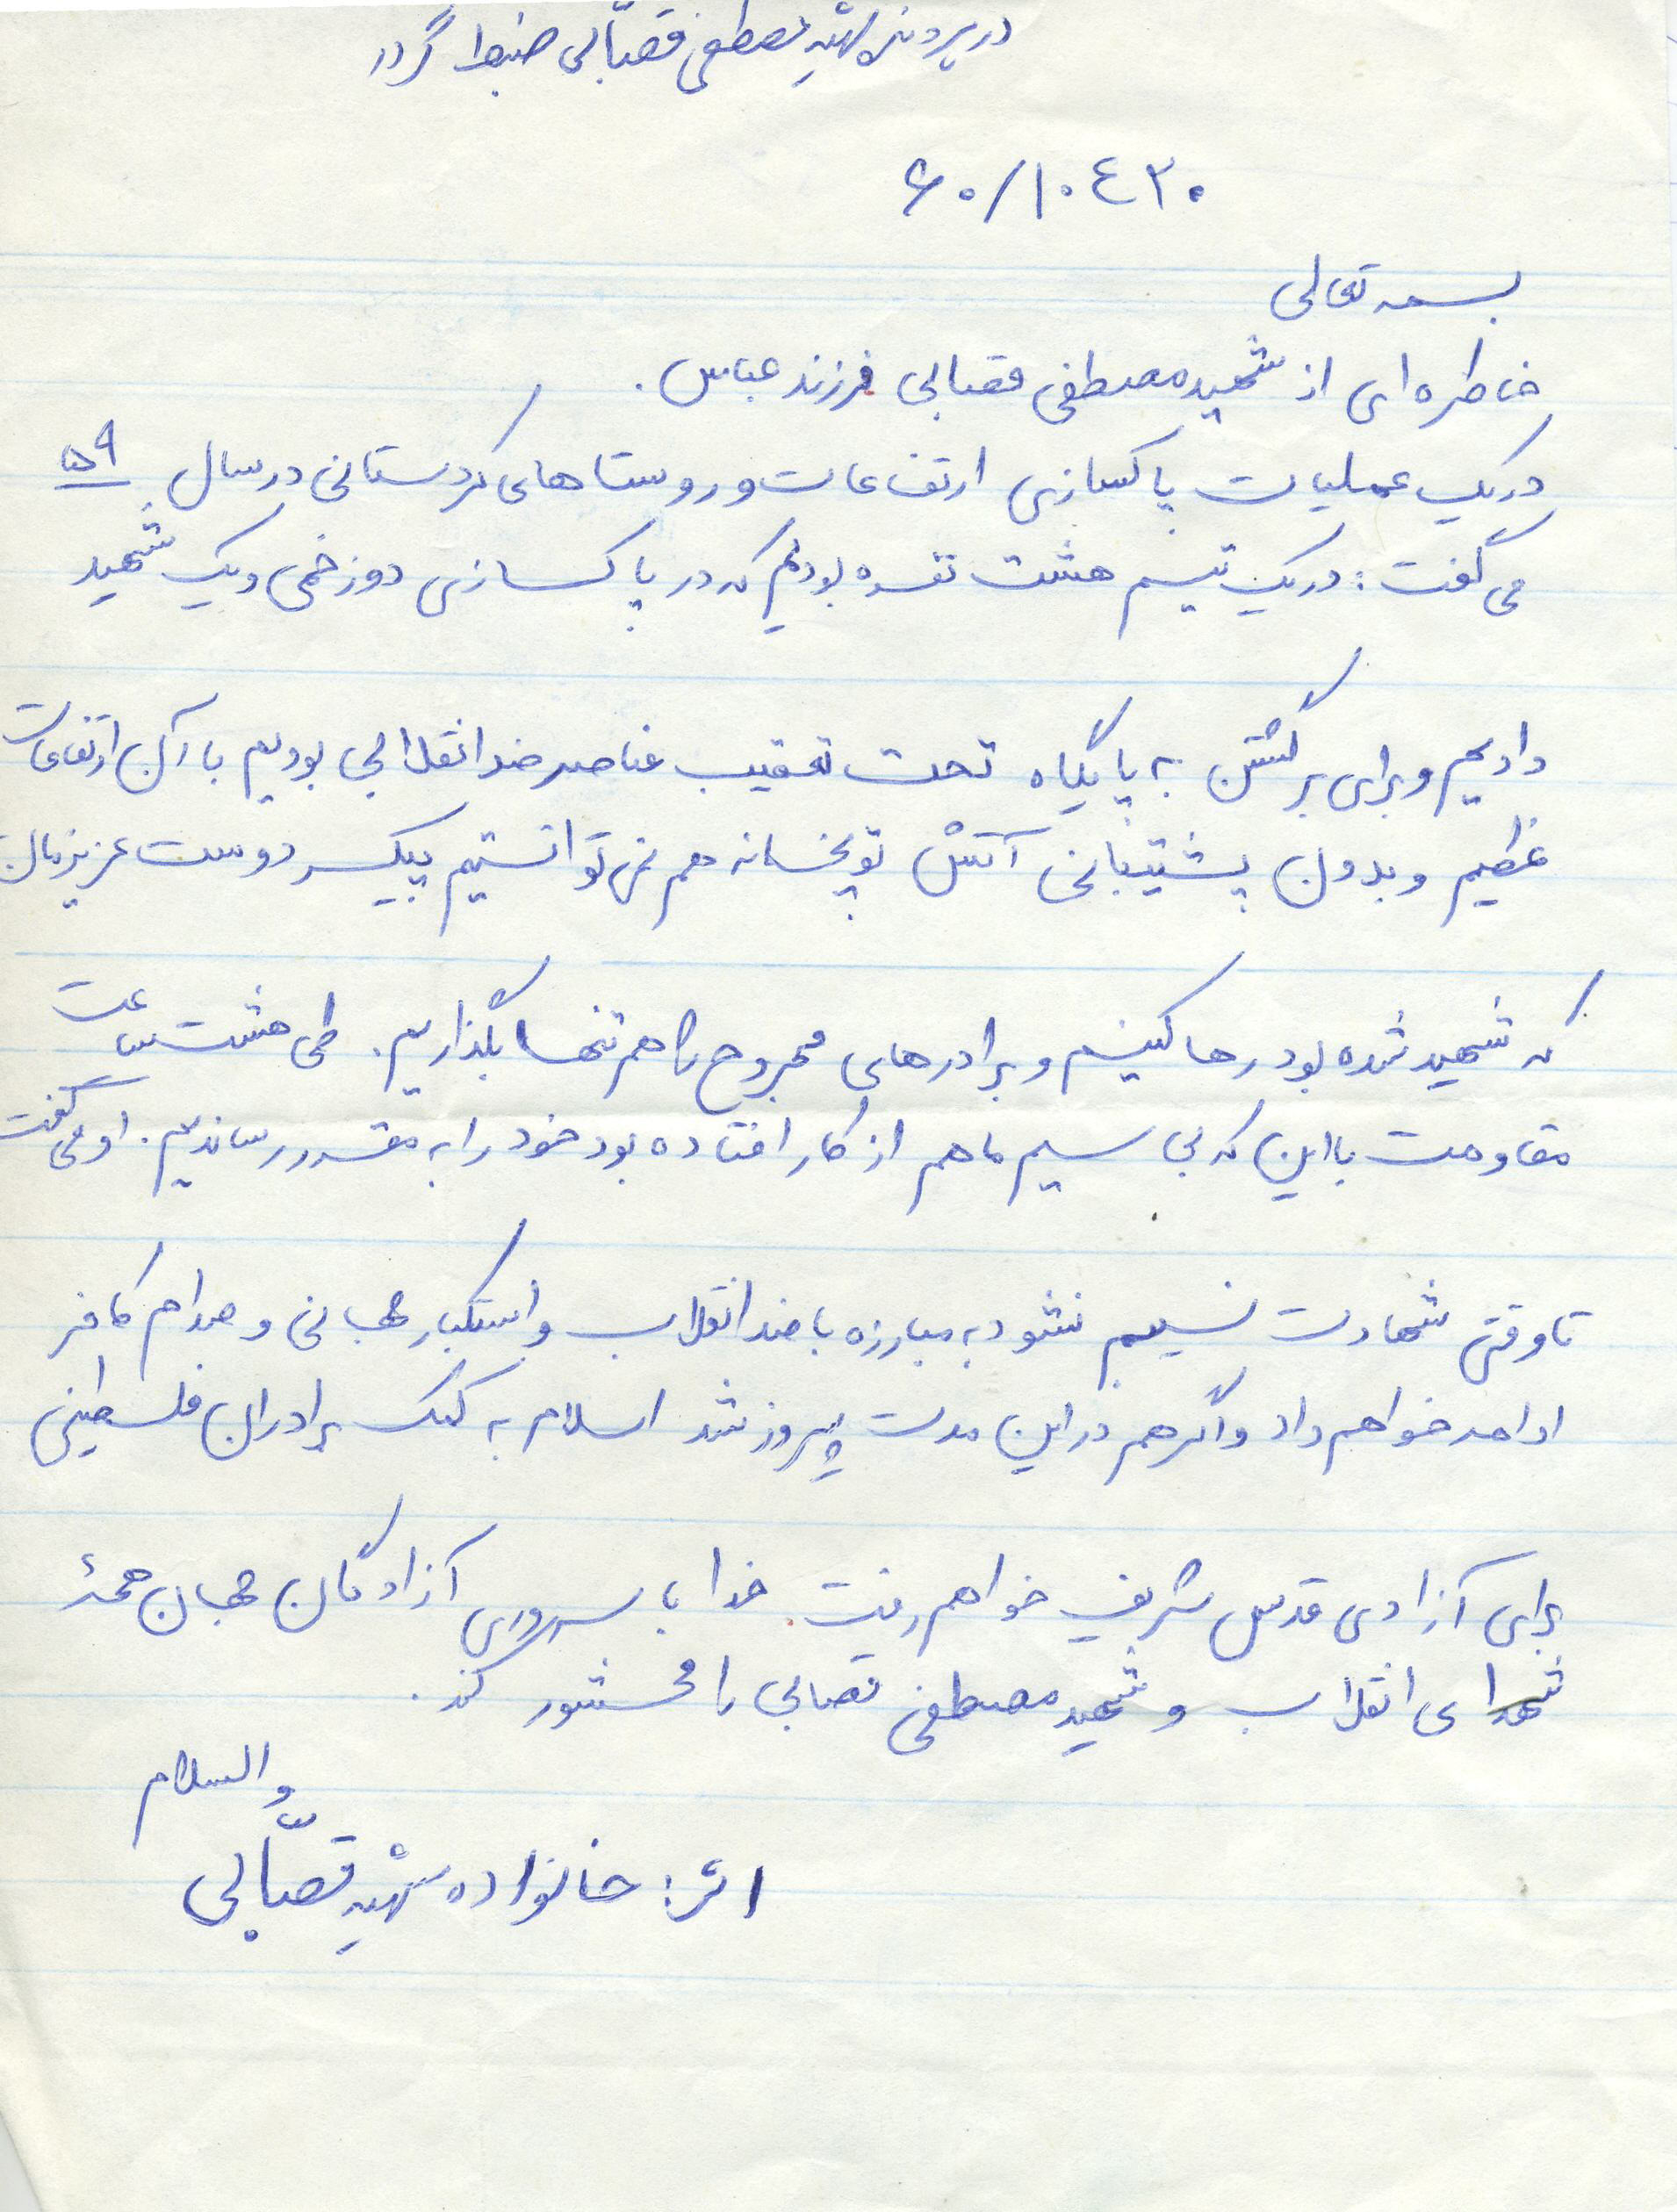 در پرونده شهید مصطفی قصّابی ضبط گردد
۶۰/۱۰۴۳۰
بسمه تعالی
خاطره ای از شهید مصطفی قصابی فرزند عباس.
در یک عملیات پاکسازی ارتفاعات و روستاهای کردستانی در سال ۵۹
می گفت: در یک تیم هشت نفره بودیم که در پاکسازی دو زخمی و یک شهید
دادیم و برای برگشتن به پایگاه تحت تعقیب عناصر ضد انقلابی بودیم با آن ارتفاعات
عظیم و بدون پشتیبانی آتش توپخانه هم نمی توانستیم پیکر دوست عزیزمان
که شهید شده بود رها کنیم و برادرهای مجروح را هم تنها بگذاریم. طی هشت ساعت
مقاومت با این که بی سیم ما هم از کار افتاده بود خود را به مقر رساندیم. او می گفت
تا وقتی شهادت نسیبم نشود به مبارزه با ضد انقلاب و استکبار جهانی و صدام کافر
ادامه خواهم داد و اگر هم در این مدت پیروز شد اسلام به کمک برادران فلسطینی
برای آزادی قدس شریف خواهم رفت. خدا با سرور آزادگان جهان همهٔ
شهدای انقلاب و شهید مصطفی قصابی را محشور کند.
والسلام
اثر: خانواده شهید قصّابی